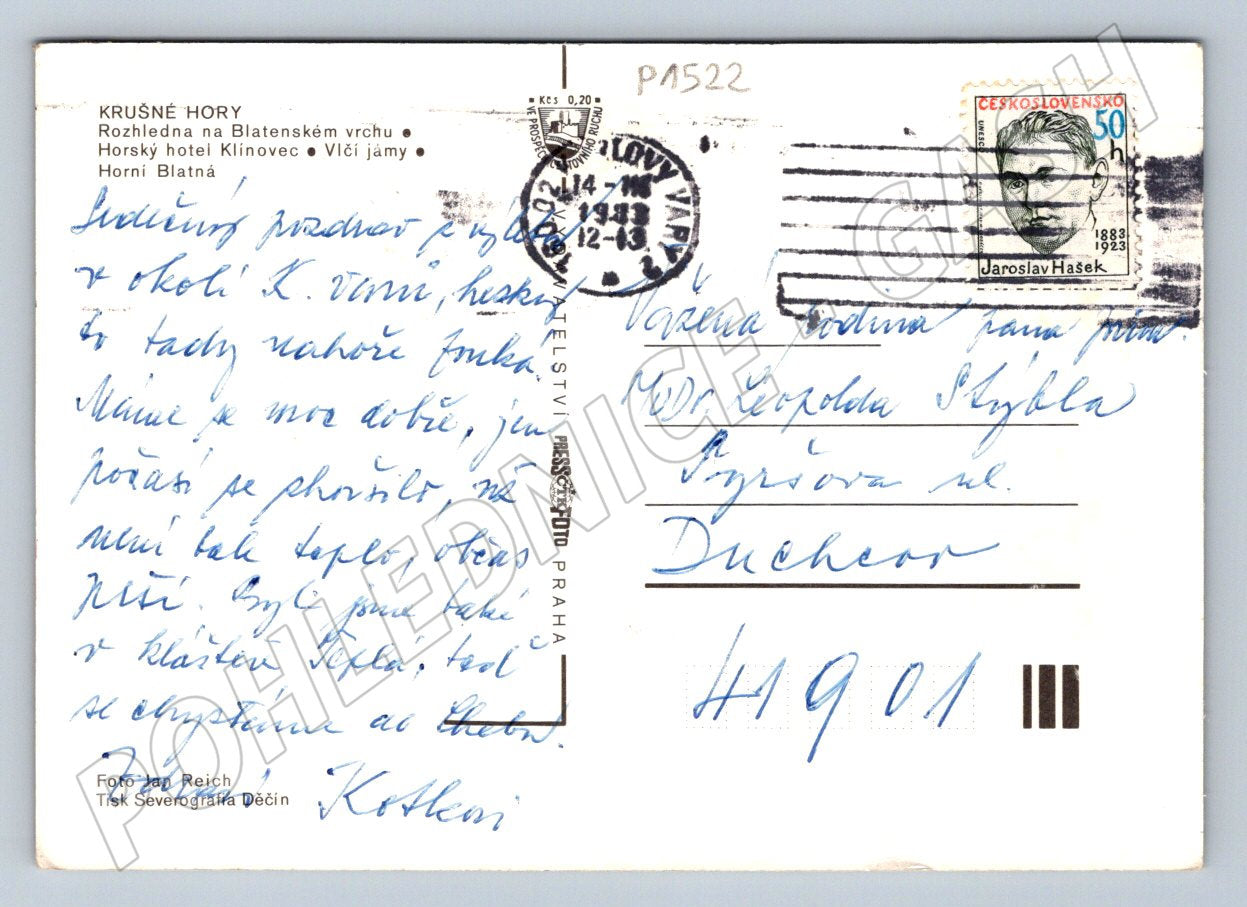 P1522
KRUŠNÉ HORY
Rozhledna na Blatenském vrchu ●
Horský hotel Klínovec ● Vlčí jámy ●
Horní Blatná
Kčs 0,20
VE PROSPĚCH CESTOVNÍHO RUCHU
KARLOVY VARY 2
14
1983
12-13
360 02
ČESKOSLOVENSKO
50 h
UNESCO
1883
1923
Jaroslav Hašek
Srdečný pozdrav z výletu
v okolí K. Varů, hezky
to tady nahoře fouká.
Máme se moc dobře, jen
počasí se zhoršilo, už
není tak teplo, občas
prší. Byli jsme také
v klášteře Teplá, teď
se chystáme do Chebu.
Zdraví Kotkovi
Foto Jan Reich
Tisk Severografia Děčín
VYDAVATELSTVÍ PRESSFOTO PRAHA
ČTK
Vážená rodina pana prim.
MUDr. Leopolda Stýbla
Tyršova ul.
Duchcov
41901
POHLEDNICE - GASH